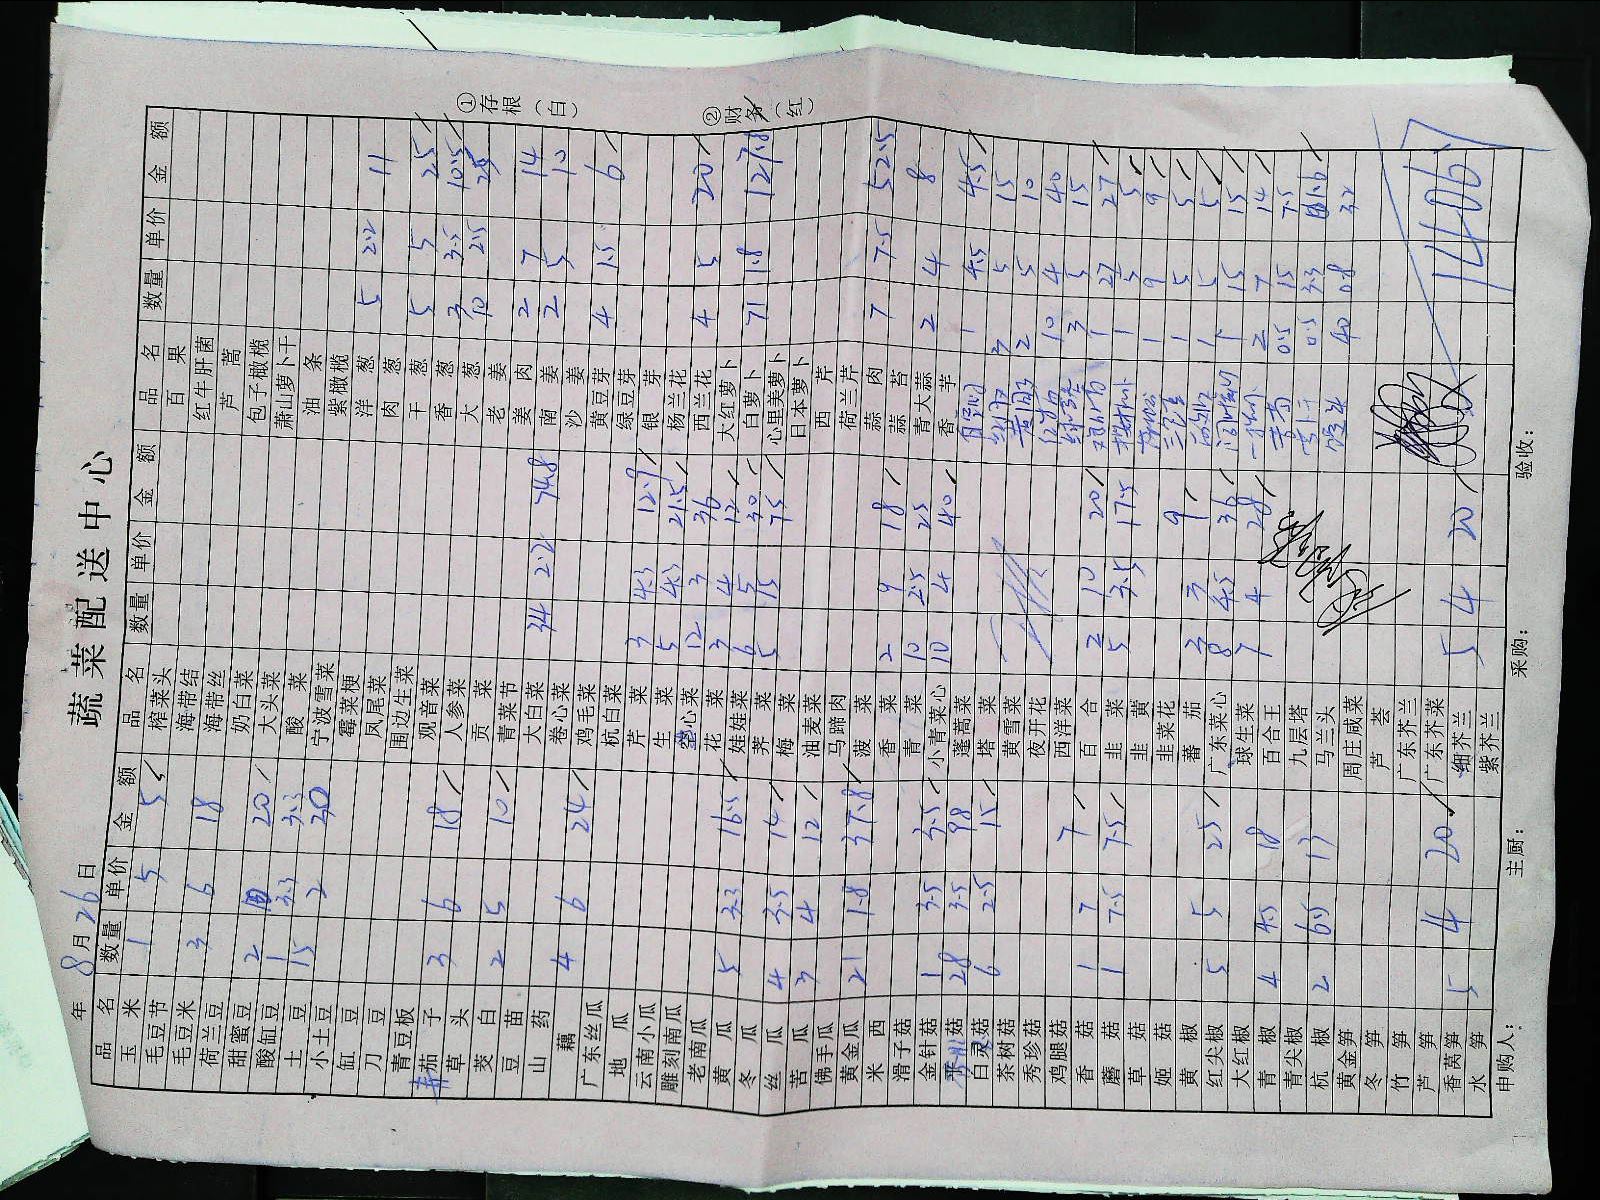 蔬菜配送中心
年 8月26日
品名 数量 单价 金额
玉米 1 5 5
毛豆节
毛豆米 3 6 18
荷兰豆
甜蜜豆 2 20
酸缸豆 1 3.3 3.3
土豆 15 2 30
小土豆
缸豆
刀豆
青豆板
茄子 3 6 18
草头
茭白 2 5 10
豆苗
山药
藕 4 6 24
广东丝瓜
地瓜
云南小瓜
雕刻南瓜
老南瓜
黄瓜 5 3.3 16.5
冬瓜
丝瓜 4 3.5 14
苦瓜 3 4 12
佛手瓜
黄金瓜 21 1.8 37.8
米西
滑子菇
金针菇 1 3.5 3.5
菇 28 3.5 98
白灵菇 6 2.5 15
茶树菇
秀珍菇
鸡腿菇
香菇 1 7 7
蘑菇 1 7.5 7.5
草菇
姬菇
黄椒
红尖椒 5 5 25
大红椒
青椒 4 4.5 18
青尖椒
杭椒 2 6.5 13
黄金笋
冬笋
竹笋
芦笋
香莴笋 5 4 20
水笋
品名 数量 单价 金额
榨菜头
海带结
海带丝
奶白菜
大头菜
酸菜
宁波雪菜
霉菜梗
凤尾菜
围边生菜
观音菜
人参菜
贡菜
青菜节
大白菜 34 2.2 74.8
卷心菜
鸡毛菜
杭白菜
芹菜 3 4.3 12.9
生菜 5 4.3 21.5
空心菜 12 3 36
花菜 3 4 12
娃娃菜 6 5 30
荠菜 5 15 75
梅菜
油麦菜
马蹄肉
菠菜
香菜 2 9 18
青菜 10 2.5 25
小青菜心 10 4 40
蓬蒿菜
塔菜
黄雪菜
夜开花
西洋菜
百合 2 10 20
韭菜 5 3.5 17.5
韭黄
韭菜花
蕃茄 3 3 9
广东菜心 8 4.5 36
球生菜 7 4 28
百合王
九层塔
马兰头
周庄咸菜
芦荟
广东芥兰
广东芥菜
细芥兰 5 4 20
紫芥兰
品名 数量 单价 金额
百果
红牛肝菌
芦蒿
包子橄榄
萧山萝卜干
油条
紫橄榄
洋葱 5 2.2 11
肉葱
干葱 5 5 25
香葱 3 3.5 10.5
大葱 10 2.5 25
老姜
姜肉 2 7 14
南姜 2 5 10
沙姜
黄豆芽 4 1.5 6
绿豆芽
银芽
杨兰花
西兰花 4 5 20
大红萝卜
白萝卜 71 1.8 127.8
心里美萝卜
日本萝卜
西芹
荷兰芹
蒜肉 7 7.5 52.5
蒜苔
青大蒜 2 4 8
香芋
1 4.5 4.5
3 5 15
2 5 10
10 4 40
3 5 15
1 27 27
1 5 5
1 9 9
1 5 5
1 5 5
1 15 15
2 7 14
0.5 15 7.5
0.5 3.3
40 0.8 32
1406.7
①存根(白)
②财务(红)
申购人: 主厨: 采购: 验收: